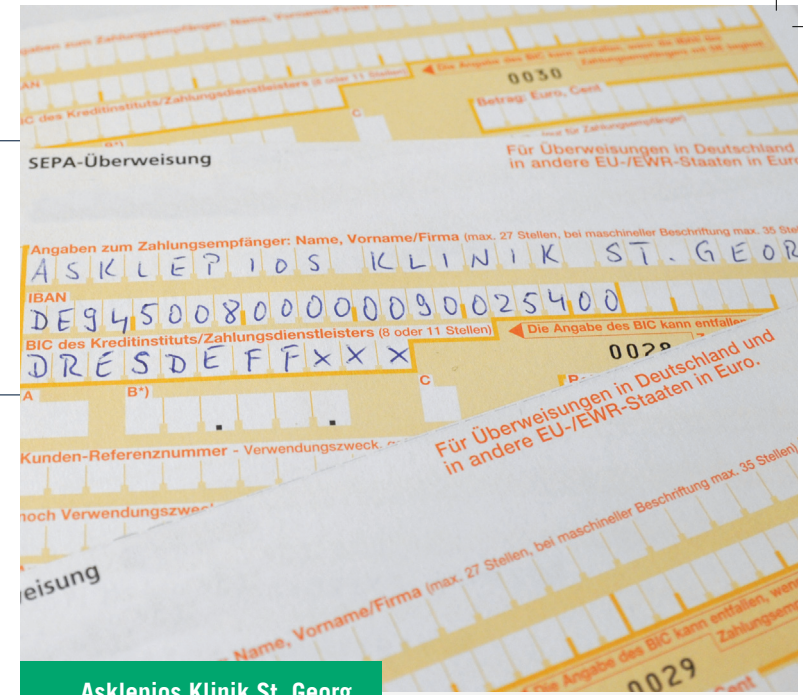 Angaben zum Zahlungsempfänger: Name, Vorname/Firma
IC des Kreditinstituts/Zahlungsdienstleisters (8 oder 11 Stellen)
Die Angabe des BIC kann entfallen, wenn die IBAN des
Zahlungsempfängers mit DE beginnt
0030
Betrag: Euro, Cent
C
SEPA-Überweisung
Für Überweisungen in Deutschland
in andere EU-/EWR-Staaten in Euro
Angaben zum Zahlungsempfänger: Name, Vorname/Firma (max. 27 Stellen, bei maschineller Beschriftung max. 35 Stel
ASKLEPIOS KLINIK ST. GEOR
IBAN
DE94500800000090025400
BIC des Kreditinstituts/Zahlungsdienstleisters (8 oder 11 Stellen)
Die Angabe des BIC kann entfallen
DRESDEFFXXX
0029
A
B*)
C
Kunden-Referenznummer - Verwendungszweck,
noch Verwendungszwec
Für Überweisungen in Deutschland und
in andere EU-/EWR-Staaten in Euro.
eisung
Name, Vorname/Firma (max. 27 Stellen, bei maschineller Beschriftung max. 35 Stellen)
Die Angabe des BIC kann entfallen, wenn
Zahlungsem
0029
Cent
Asklepios Klinik St. Georg